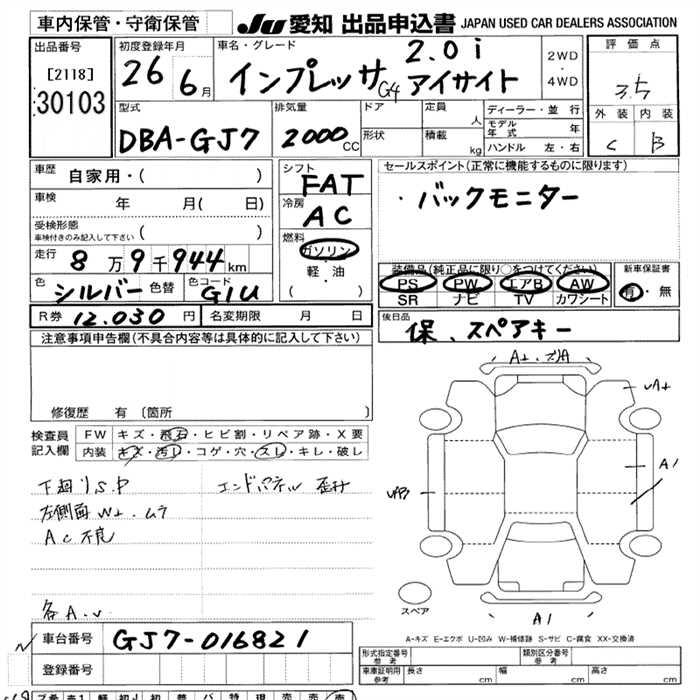 車内保管・守衛保管
JU 愛知 出品申込書 JAPAN USED CAR DEALERS ASSOCIATION
出品番号
[2118]
30103
初度登録年月
26 6月
車名・グレード
2.0i
インプレッサ G4 アイサイト
2WD
・
4WD
評価点
3.5
外装 内装
C B
型式
DBA-GJ7
排気量
2000cc
ドア
形状
定員 人
積載 kg
ディーラー・並行
モデル年式 年
ハンドル 左・右
車歴 自家用・( )
車検 年 月( 日)
受検形態
車検付きのみ記入して下さい ( )
走行 8万9千944km
色 シルバー 色替
色コード G1U
R券 12,030円
名変期限 月 日
シフト
FAT
冷房
AC
燃料
ガソリン
・
軽・油
( )
セールスポイント(正常に機能するものに限ります)
・バックモニター
装備品(純正品に限り○をつけてください)
PS PW エアB AW
SR ナビ TV カワシート
新車保証書
有・無
後日品
保、スペアキー
注意事項申告欄(不具合内容等は具体的に記入して下さい)
修復歴 有 〔箇所 〕
検査員記入欄
FW キズ・飛石・ヒビ割・リペア跡・X要
内装 キズ・汚レ・コゲ・穴・スレ・キレ・破レ
下廻りS.P
エンドパネル 歪み
左側面W+.ムラ
AC不良
各A.U
A+.ズA
A+
A1
A1
スペア
A-キズ E-エクボ U-凹み W-補修跡 S-サビ C-腐食 XX-交換済
車台番号 GJ7-016821
登録番号
形式指定番号
参考
類別区分番号
参考
車庫証明用
参考
長さ cm
幅 cm
高さ cm